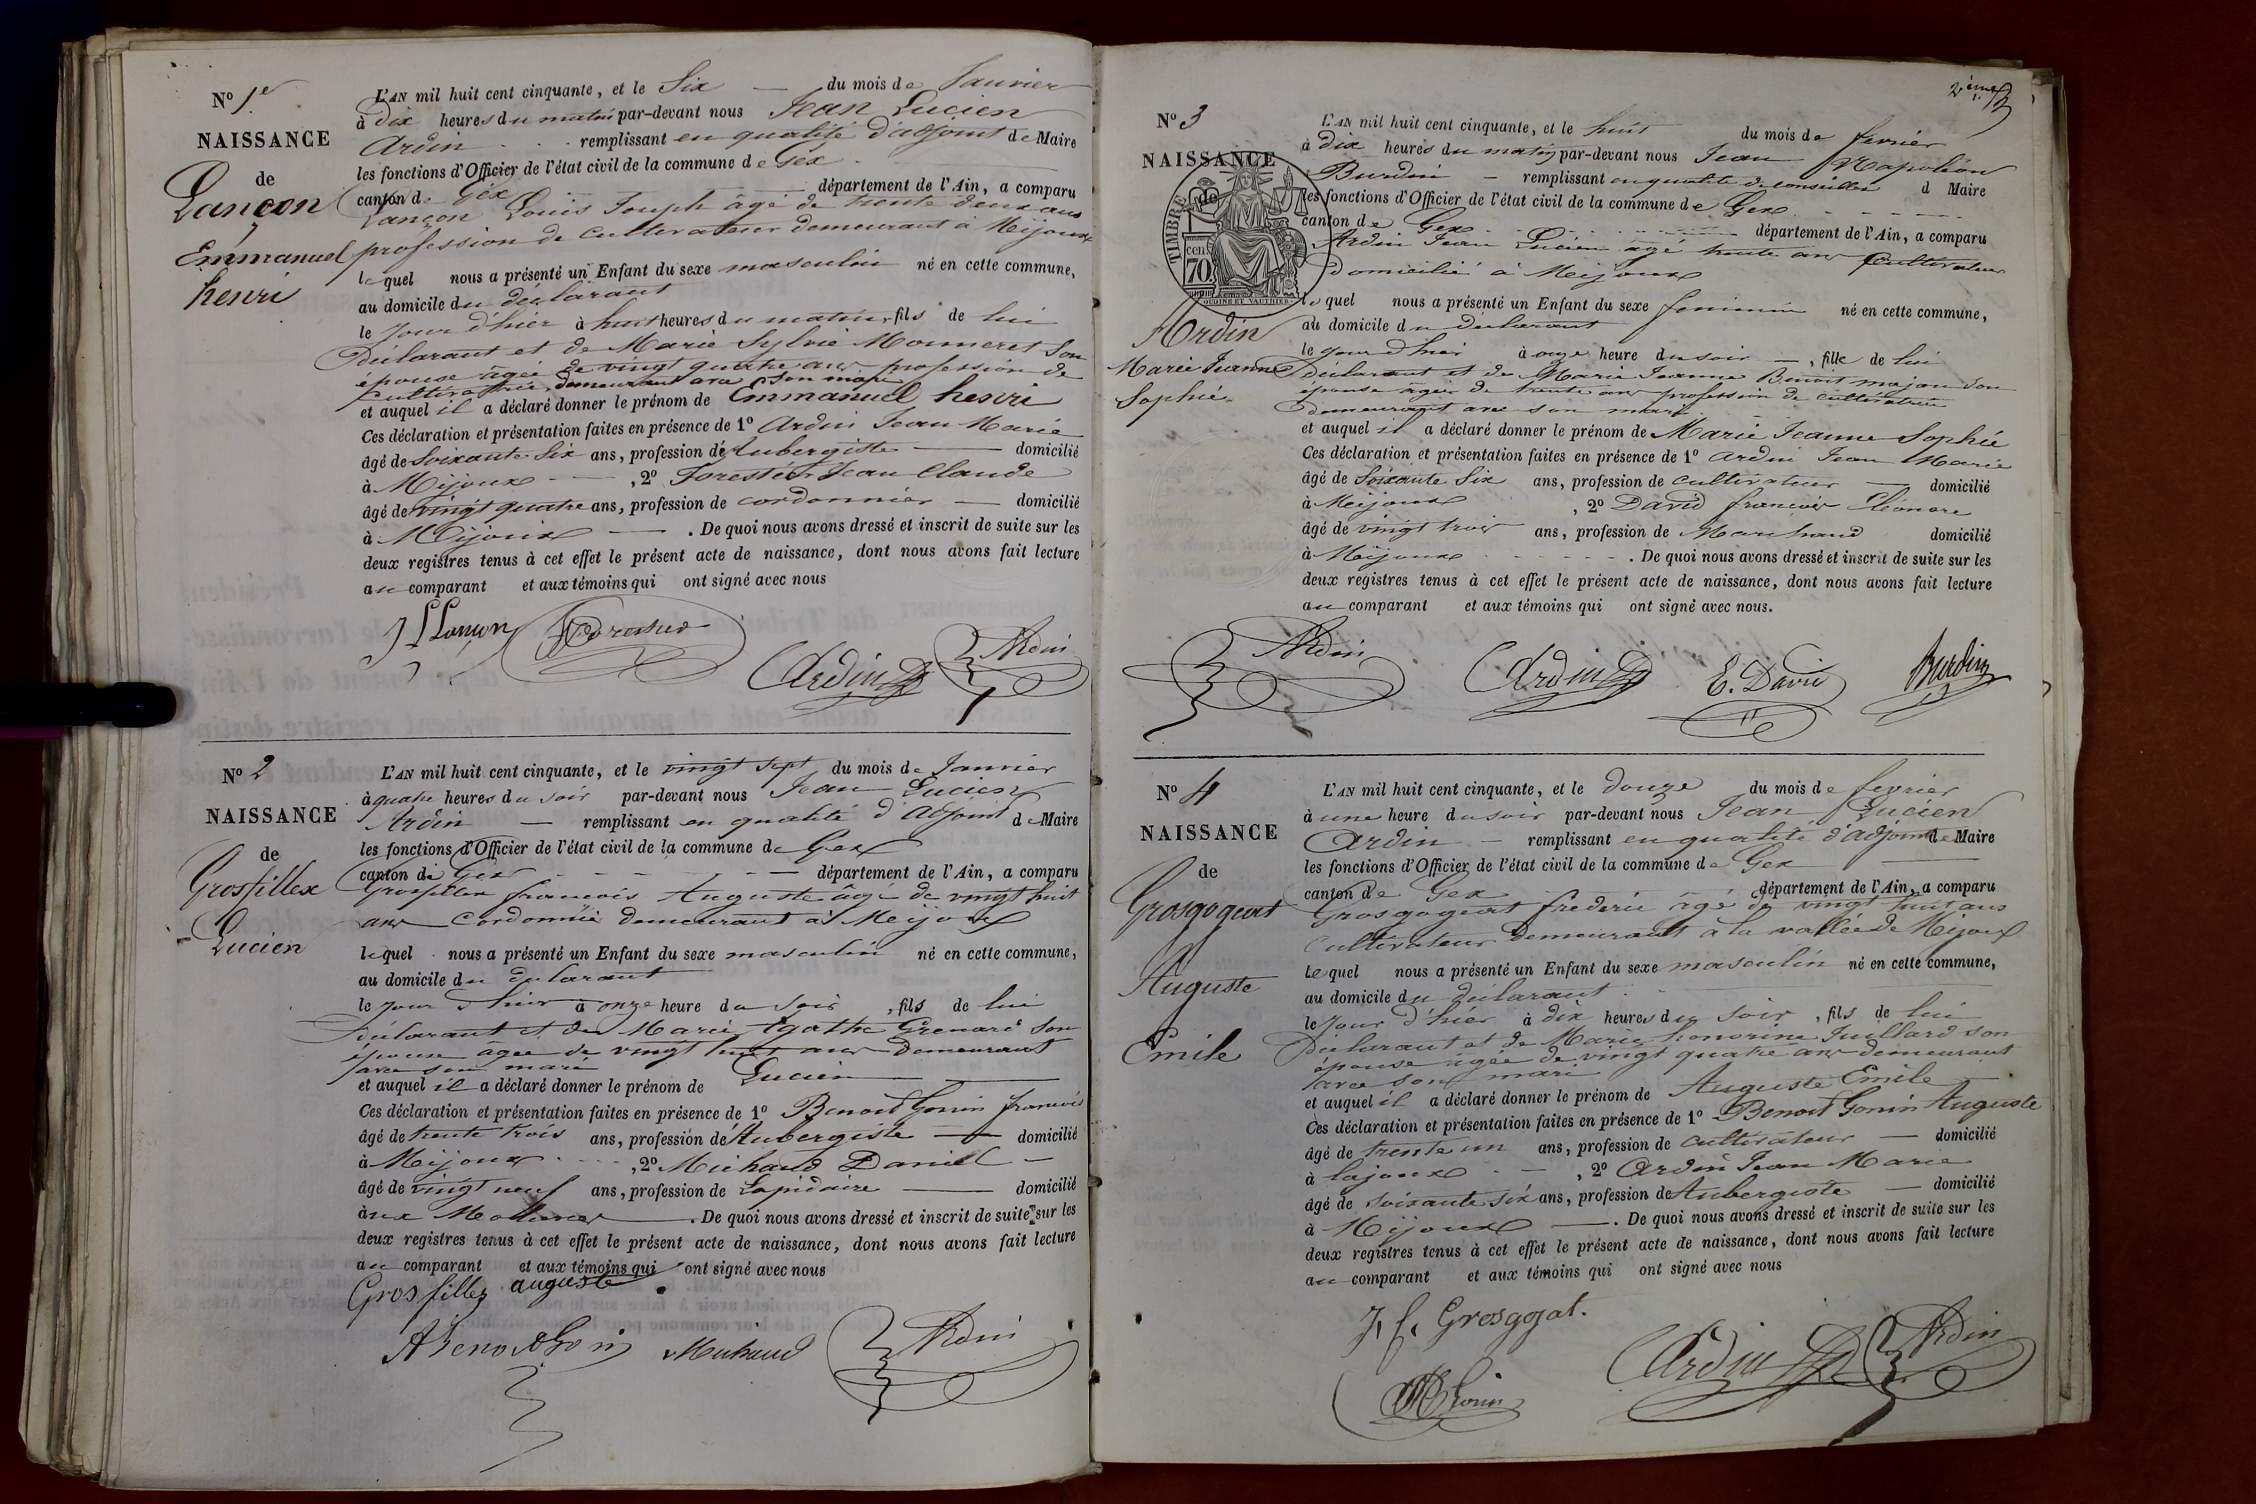 N° 1er
NAISSANCE
de
Lançon
Emmanuel
henri
L'AN mil huit cent cinquante, et le Six — du mois de Janvier
à Dix heures du matin par-devant nous Jean Lucien
Ardin remplissant en qualité d'adjoint de Maire
les fonctions d'Officier de l'état civil de la commune de Géx
canton de Géx département de l'Ain, a comparu
Lançon Louis Joseph âgé de trente deux ans
profession de Cultivateur demeurant à Mijoux
lequel nous a présenté un Enfant du sexe masculin né en cette commune,
au domicile du déclarant
le jour d'hier à huit heures du matin, fils de lui
Déclarant et de Marie Sylvie Monneret Son
épouse âgée de vingt quatre ans profession de
cultivatrice, demeurant avec Son mari
et auquel il a déclaré donner le prénom de Emmanuel henri
Ces déclaration et présentation faites en présence de 1° Ardin Jean Marie
âgé de Soixante Six ans, profession de Aubergiste — domicilié
à Mijoux — , 2° Forestier Jean Claude
âgé de vingt quatre ans, profession de cordonnier — domicilié
à Mijoux — . De quoi nous avons dressé et inscrit de suite sur les
deux registres tenus à cet effet le présent acte de naissance, dont nous avons fait lecture
au comparant et aux témoins qui ont signé avec nous
Lançon
Ardin Ardin
N° 2
NAISSANCE
de
Grosfillex
Lucien
L'AN mil huit cent cinquante, et le vingt sept du mois de Janvier
à quatre heures du soir par-devant nous Jean Lucien
Ardin — remplissant en qualité d'Adjoint de Maire
les fonctions d'Officier de l'état civil de la commune de Gex
canton de Gex département de l'Ain, a comparu
Grosfillex françois Auguste âgé de vingt huit
ans Cordonnier demeurant à Mijoux
lequel nous a présenté un Enfant du sexe masculin né en cette commune,
au domicile du déclarant
le jour d'hier à onze heure du soir, fils de lui
Déclarant et de Marie Agathe Grenard son
épouse âgée de vingt huit ans Demeurant
avec son mari
et auquel il a déclaré donner le prénom de Lucien
Ces déclaration et présentation faites en présence de 1° Benoit Gonin françois
âgé de trente trois ans, profession de Aubergiste — domicilié
à Mijoux , 2° Michaud Daniel —
âgé de vingt neuf ans, profession de Lapidaire — domicilié
aux — . De quoi nous avons dressé et inscrit de suite sur les
deux registres tenus à cet effet le présent acte de naissance, dont nous avons fait lecture
au comparant et aux témoins qui ont signé avec nous
Grosfillex auguste
Michaud Ardin
2ème
N° 3
NAISSANCE
de
TIMBRE
70
Ardin
Marie Jeanne
Sophie
L'AN mil huit cent cinquante, et le huit du mois de fevrier
à Dix heures du matin par-devant nous Jean Napoléon
Burdin — remplissant en qualité de conseiller d Maire
les fonctions d'Officier de l'état civil de la commune de Gex
canton de Gex département de l'Ain, a comparu
Ardin Jean Lucien âgé trente ans Cultivateur
Domicilié à Mijoux
lequel nous a présenté un Enfant du sexe feminin né en cette commune,
au domicile du déclarant
le jour d'hier à onze heure du soir —, fille de lui
Déclarant et de Marie Jeanne Benoit son
épouse âgée de trente ans profession de cultivatrice
demeurant avec son mari
et auquel il a déclaré donner le prénom de Marie Jeanne Sophie
Ces déclaration et présentation faites en présence de 1° Ardin Jean Marie
âgé de Soixante Six ans, profession de cultivateur — domicilié
à Mijoux , 2° David françois Eléonore
âgé de vingt trois ans, profession de Marchand domicilié
à Mijoux . De quoi nous avons dressé et inscrit de suite sur les
deux registres tenus à cet effet le présent acte de naissance, dont nous avons fait lecture
au comparant et aux témoins qui ont signé avec nous.
Ardin Ardin E. David Burdin
N° 4
NAISSANCE
de
Grosgogeat
Auguste
Emile
L'AN mil huit cent cinquante, et le Douze du mois de fevrier
à une heure du soir par-devant nous Jean Lucien
Ardin — remplissant en qualité d'adjoint de Maire
les fonctions d'Officier de l'état civil de la commune de Gex
canton de Gex département de l'Ain, a comparu
Grosgogeat frederic âgé de vingt huit ans
Cultivateur demeurant à la vallée de Mijoux
Lequel nous a présenté un Enfant du sexe masculin né en cette commune,
au domicile du déclarant
le jour d'hier à dix heures du soir, fils de lui
Déclarant et de Marie honorine Juillard son
épouse âgée de vingt quatre ans demeurant
avec son mari
et auquel il a déclaré donner le prénom de Auguste Emile
Ces déclaration et présentation faites en présence de 1° Benoit Gonin Auguste
âgé de trente un ans, profession de cultivateur — domicilié
à Lajoux — , 2° Ardin Jean Marie
âgé de soixante six ans, profession de Aubergiste — domicilié
à Mijoux — . De quoi nous avons dressé et inscrit de suite sur les
deux registres tenus à cet effet le présent acte de naissance, dont nous avons fait lecture
au comparant et aux témoins qui ont signé avec nous
J. f. Grosgogat.
Ardin Ardin